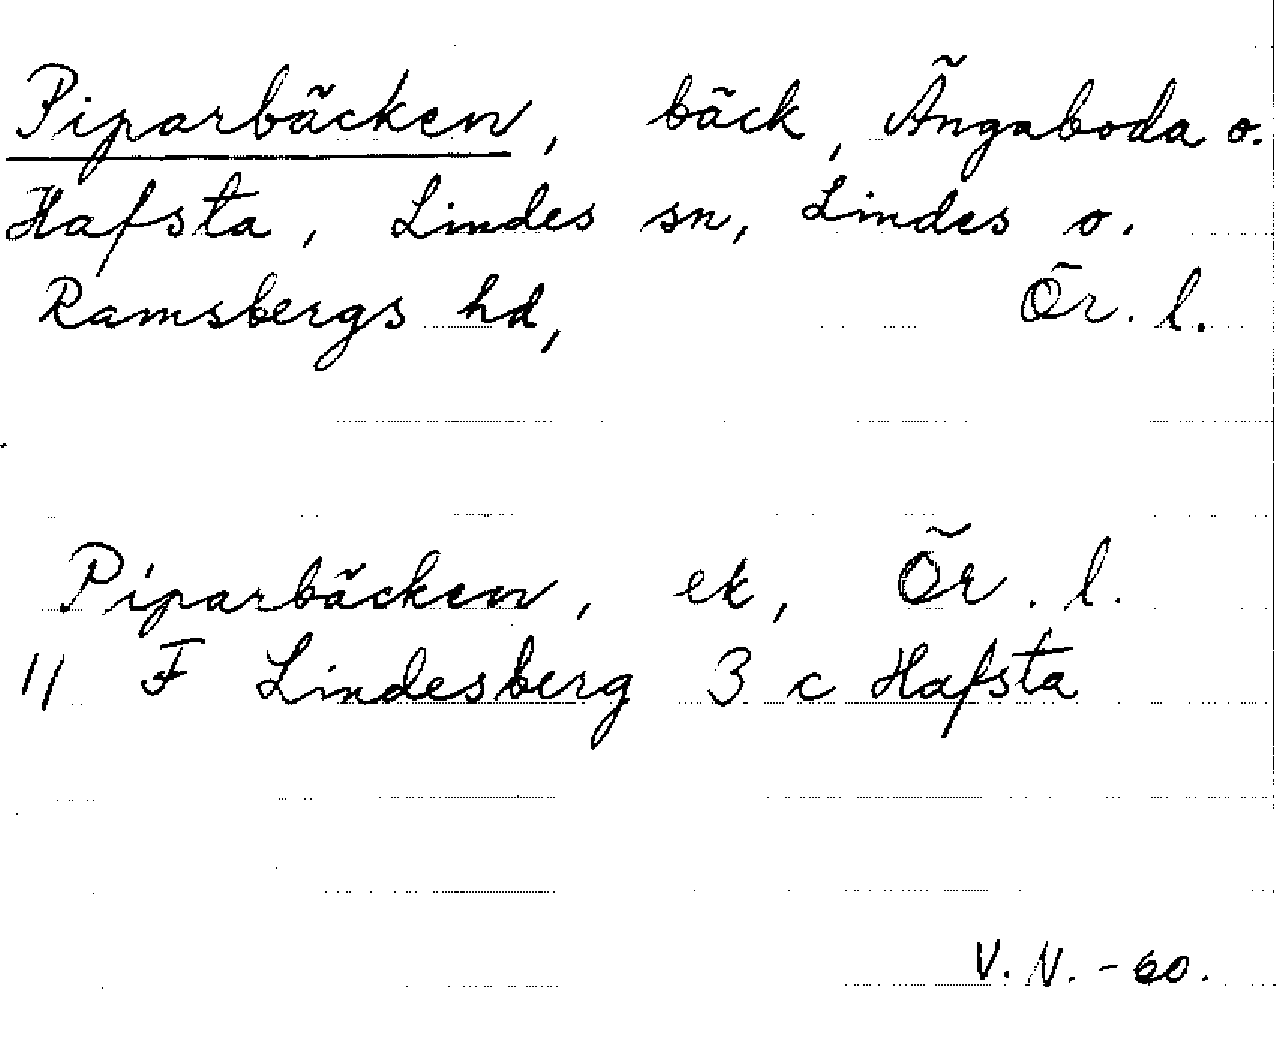 Piparbäcken, bäck, Ängaboda o.
Hafsta, Lindes sn, Lindes o.
Ramsbergs hd, Ör. l.
Piparbäcken, ek, Ör. l.
11 F Lindesberg 3 c Hafsta
V. N. - 60.